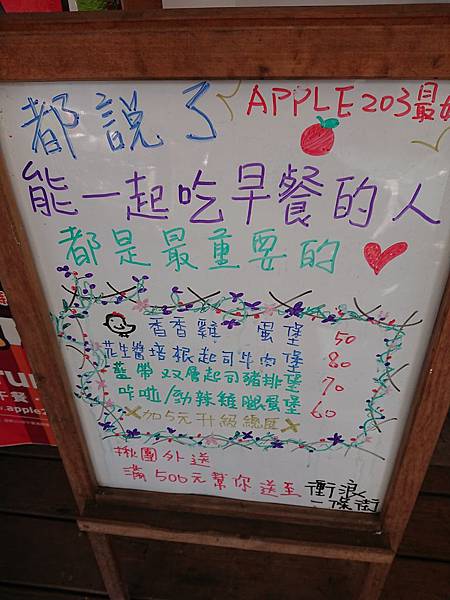 都說了 APPLE203最
能一起吃早餐的人
都是最重要的
香香雞蛋堡 50
花生醬培根起司牛肉堡 80
藍帶双層起司豬排堡 70
咔啦/勁辣雞腿蛋堡 60
加5元升級總匯
揪團外送
滿500元幫你送至 衝浪
一條街